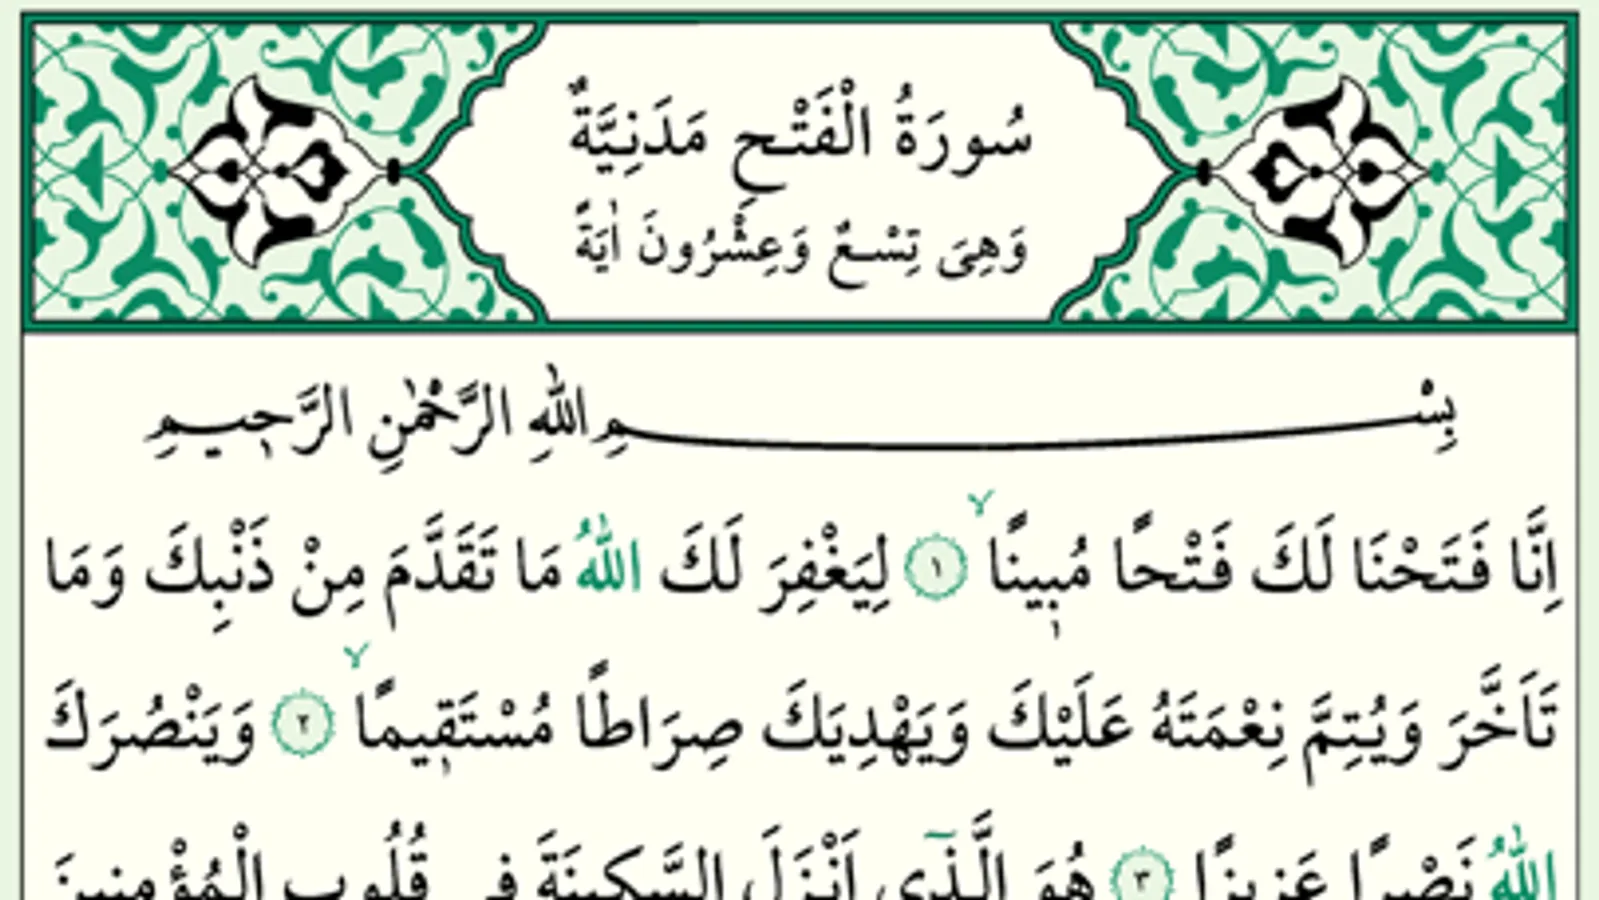 سُورَةُ الْفَتْحِ مَدَنِيَّةٌ
وَهِىَ تِسْعٌ وَعِشْرُونَ اٰيَةً
بِسْمِ اللّٰهِ الرَّحْمٰنِ الرَّحٖيمِ
اِنَّا فَتَحْنَا لَكَ فَتْحًا مُبٖينًاۙ ﴿١﴾ لِيَغْفِرَ لَكَ اللّٰهُ مَا تَقَدَّمَ مِنْ ذَنْبِكَ وَمَا
تَاَخَّرَ وَيُتِمَّ نِعْمَتَهُ عَلَيْكَ وَيَهْدِيَكَ صِرَاطًا مُسْتَقٖيمًاۙ ﴿٢﴾ وَيَنْصُرَكَ
اللّٰهُ نَصْرًا عَزٖيزًا ﴿٣﴾ هُوَ الَّذٖٓى اَنْزَلَ السَّكٖينَةَ فٖى قُلُوبِ الْمُؤْمِنٖينَ